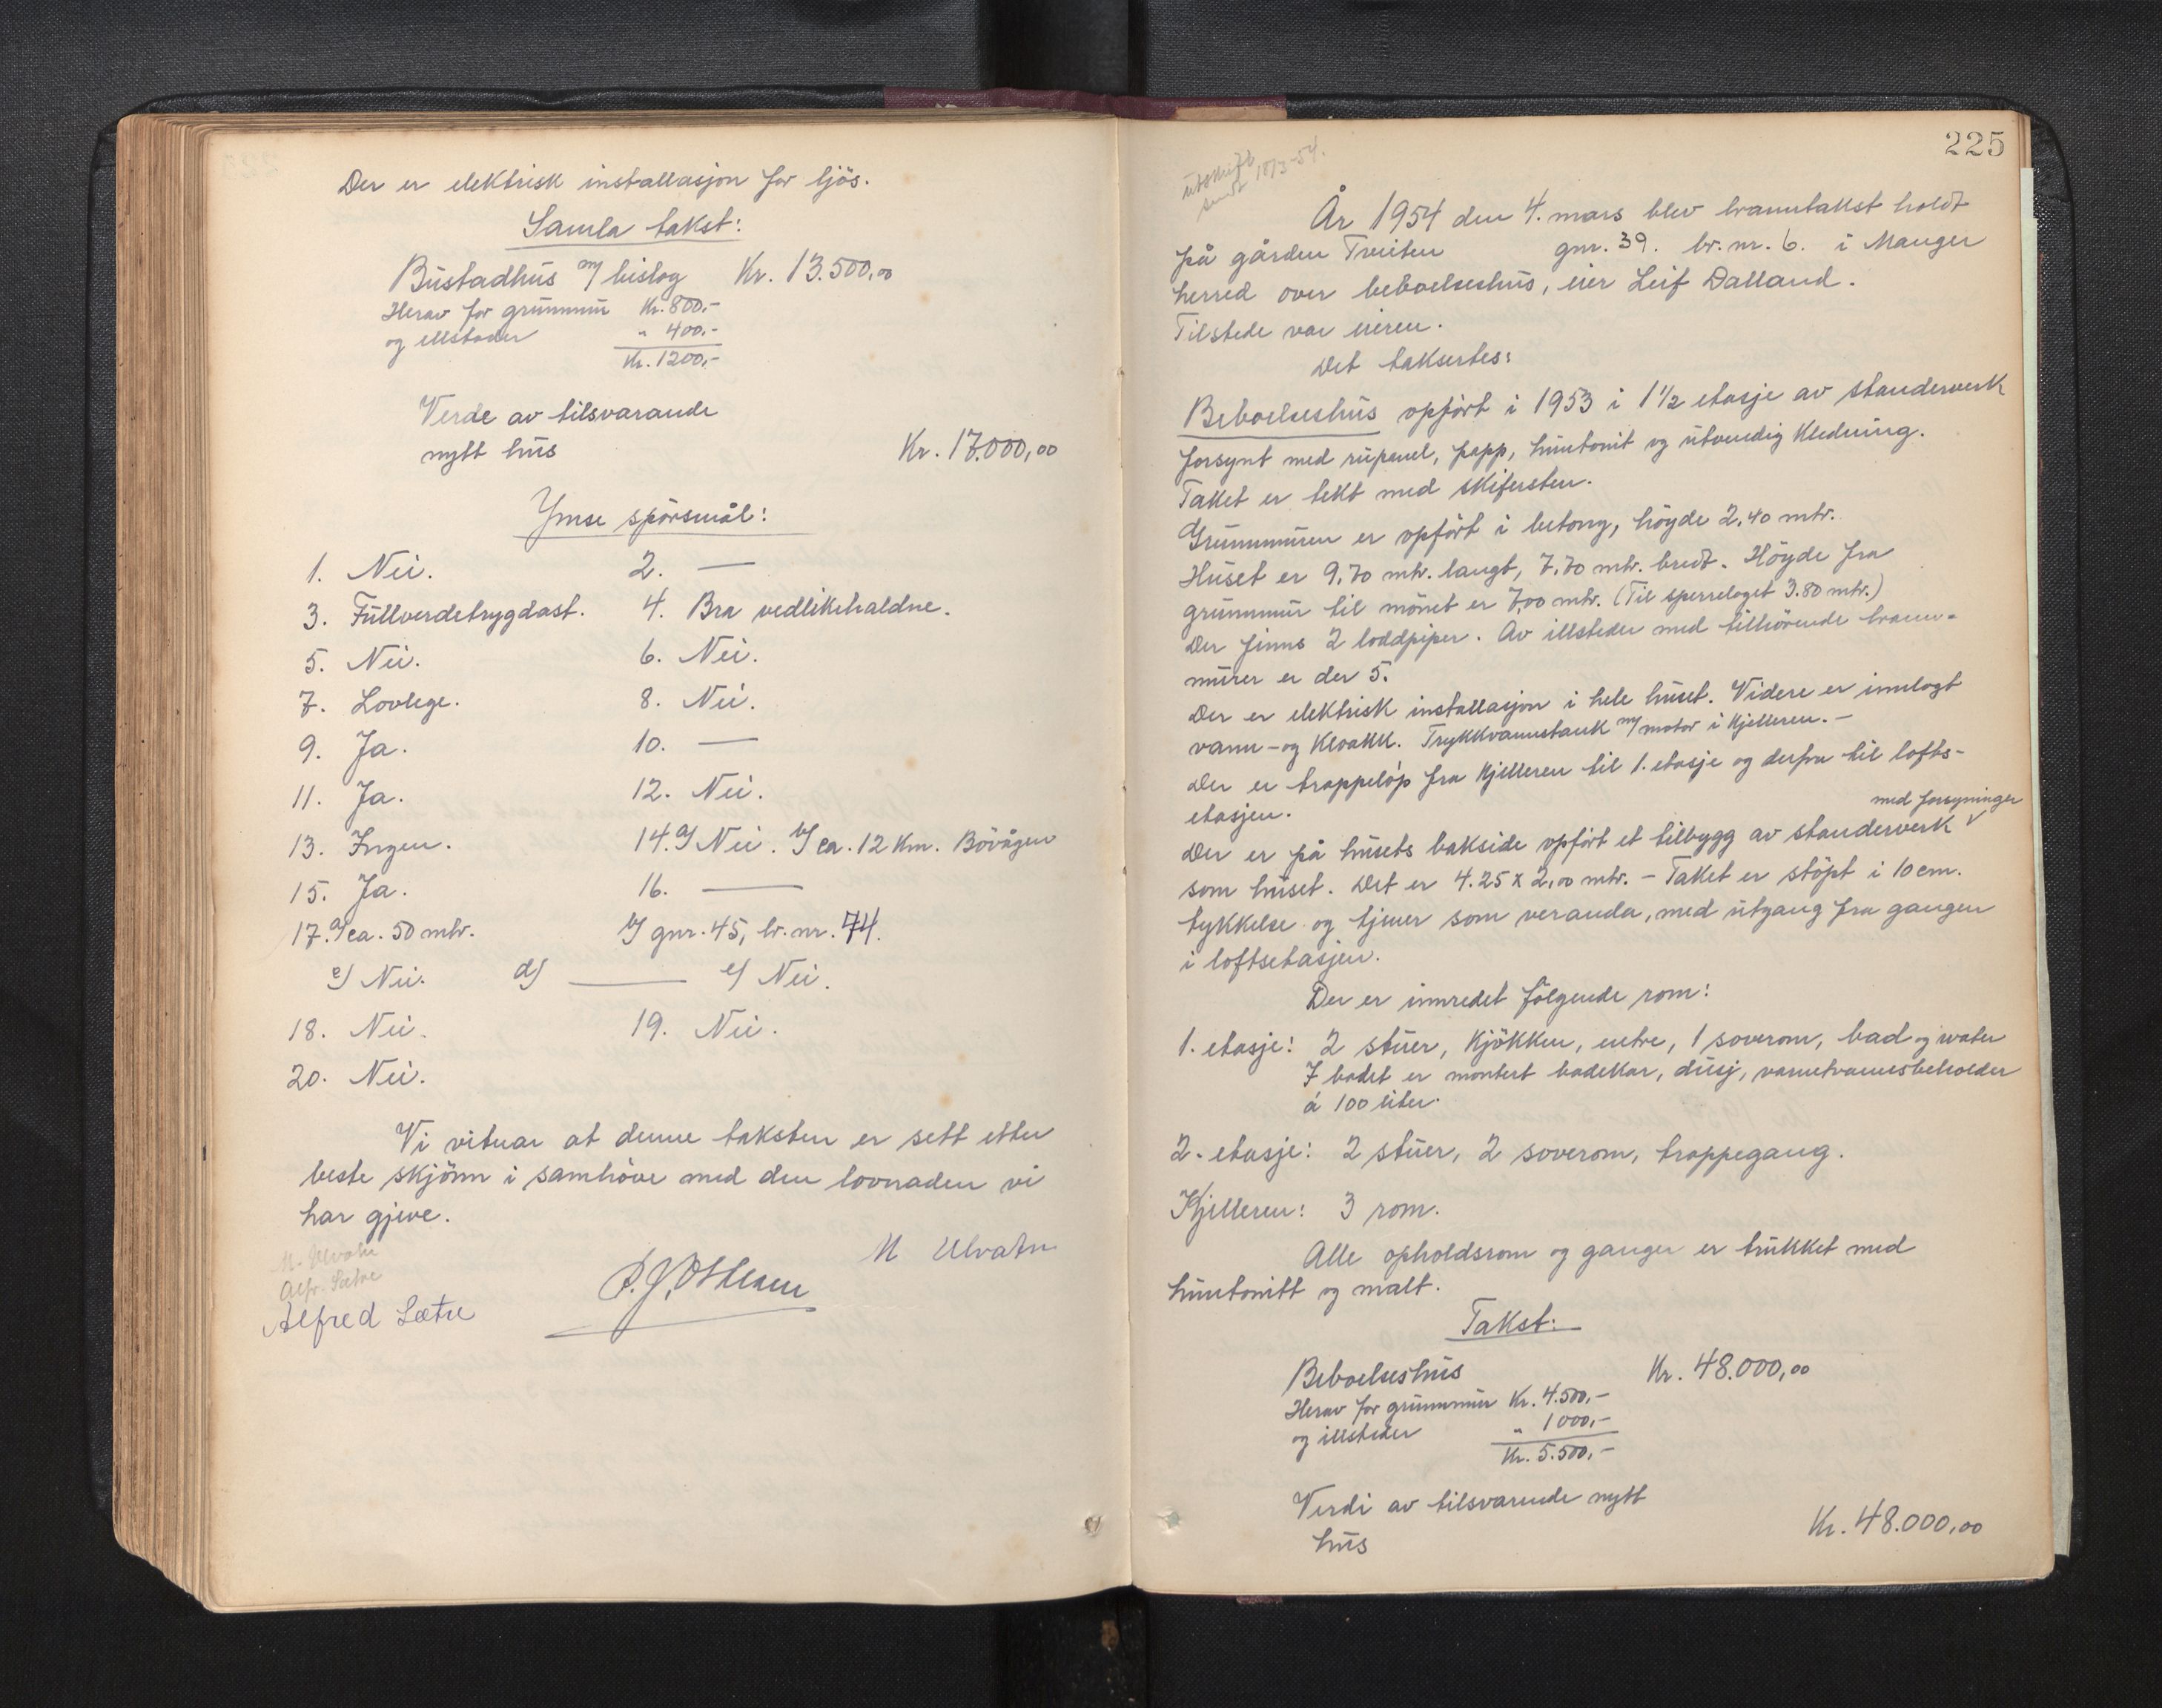 Der er elektrisk installasjon for ljös.
Samla takst:
Bustadhus m/ bislag Kr. 13.500,00
Herav for grunnmur Kr. 800,-
og ellstader " 400,-
Kr. 1200,-
Verde av tilsvarande
nytt hus Kr. 17.000,00
Ymse spörsmål:
1. Nei. 2. —
3. Fullverdetrygdast. 4. Bra vedlikehaldne.
5. Nei. 6. Nei.
7. Lovlege. 8. Nei.
9. Ja. 10. —
11. Ja. 12. Nei.
13. Ingen. 14. a/ Nei. b/ ca. 12 Km. Bövågen
15. Ja. 16. —
17. a/ ca. 50 mtr. b/ gnr. 45, br. nr. 74.
c/ Nei. d/ — e/ Nei.
18. Nei. 19. Nei.
20. Nei.
Vi vitnar at denne taksten er sett etter
beste skjönn i samhöve med den lovnaden vi
har gjeve.
M. Ulvatn
Alfr. Sætre
M Ulvatn
Alfred Sætre
225
utskrift
sendt 18/3-54.
År 1954 den 4. mars blev branntakst holdt
på gården Treiten gnr. 39. br. nr. 6. i Manger
herred over beboelseshus, eier Leif Dalland.
Tilstede var eieren.
Det taksertes:
Beboelseshus opfört i 1953 i 1 1/2 etasje av standerverk
forsynt med rupanel, papp, huntonit og utvendig kledning.
Taket er tekt med skifersten.
Grunnmuren er opfört i betong, höyde 2.40 mtr.
Huset er 9.70 mtr. langt, 7.70 mtr. bredt. Höyde fra
grunnmur til mönet er 7,00 mtr. (Til sperrelaget 3.80 mtr.)
Der finns 2 loddpiper. Av illsteder med tilhörende brann-
murer er der 5.
Der er elektrisk installasjon i hele huset. Videre er innlagt
vann- og kloakk. Trykkvannstank m/ motor i kjelleren. -
Der er trappelöp fra kjelleren til 1. etasje og derfra til lofts-
etasjen.
med forsyninger
Der er på husets bakside opfört et tilbygg av standerverk √
som huset. Det er 4.25 x 2,00 mtr. - Taket er stöpt i 10 cm.
tykkelse og tjener som veranda, med utgang fra gangen
i loftsetasjen.
Der er innredet fölgende rom:
1. etasje: 2 stuer, kjökken, entre, 1 soverom, bad og water
I badet er montert badekar, dusj, varmtvannsbeholder
á 100 liter.
2. etasje: 2 stuer, 2 soverom, trappegang.
Kjelleren: 3 rom.
Alle opholdsrom og ganger er trukket med
huntonitt og malt.
Takst:
Beboelseshus Kr. 48.000,00
Herav for grunnmur Kr. 4.500,-
og illsteder " 1000,-
Kr. 5.500,-
Verdi av tilsvarende nytt
hus Kr. 48.000,00